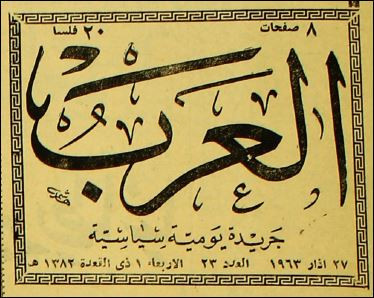 ٨ صفحات ٢٠ فلسا
العرب
جريدة يومية سياسية
٢٧ اذار ١٩٦٣ العدد ٢٣ الاربعاء ١ ذي القعدة ١٣٨٢ هـ